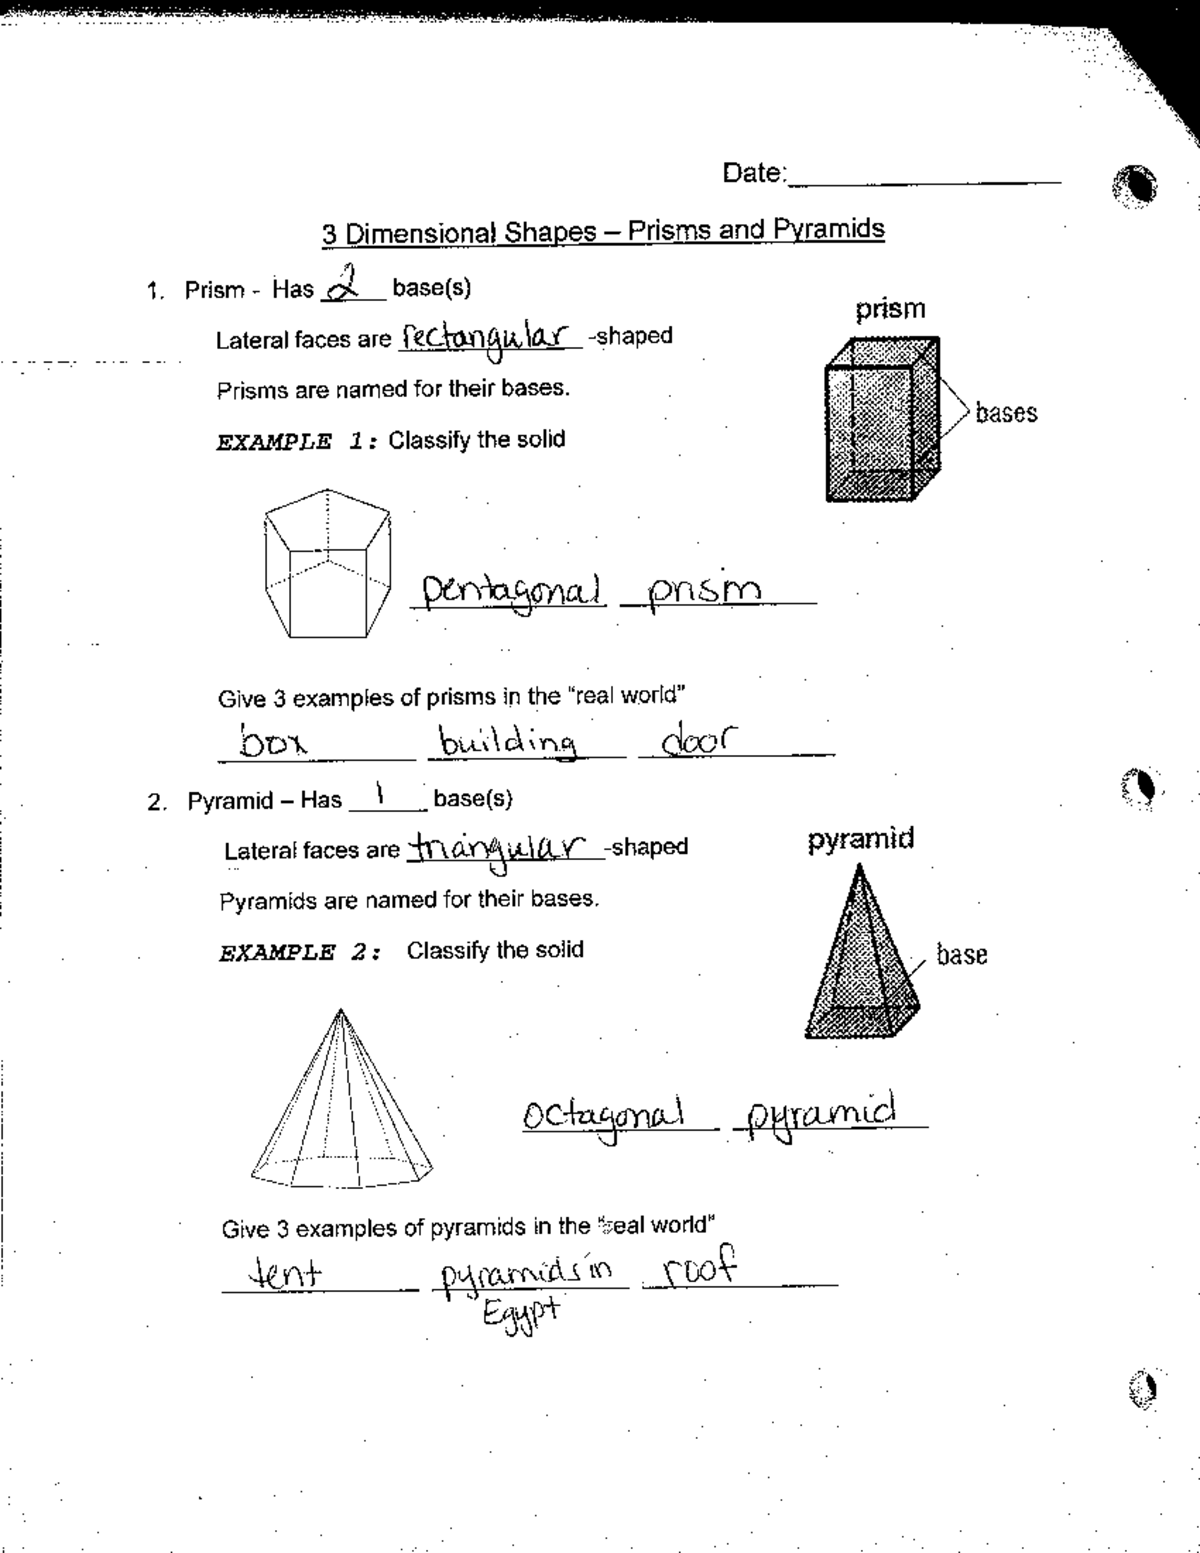 Date:
3 Dimensional Shapes – Prisms and Pyramids
1. Prism - Has 2 base(s)
prism
Lateral faces are rectangular -shaped
Prisms are named for their bases.
bases
EXAMPLE 1: Classify the solid
pentagonal prism
Give 3 examples of prisms in the "real world"
box building door
2. Pyramid – Has 1 base(s)
pyramid
Lateral faces are triangular -shaped
Pyramids are named for their bases.
EXAMPLE 2: Classify the solid
base
octagonal pyramid
Give 3 examples of pyramids in the "real world"
tent pyramids in roof
Egypt